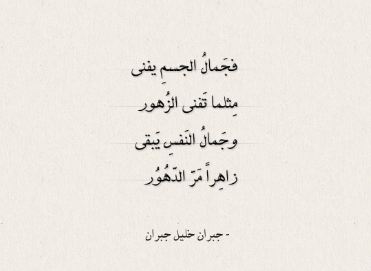 فجَمالُ الجسمِ يفنى
مِثلما تَفنى الزُهور
وجَمالُ النَفسِ يَبقى
زاهِراً مَرّ الدّهُوُر
- جبران خليل جبران